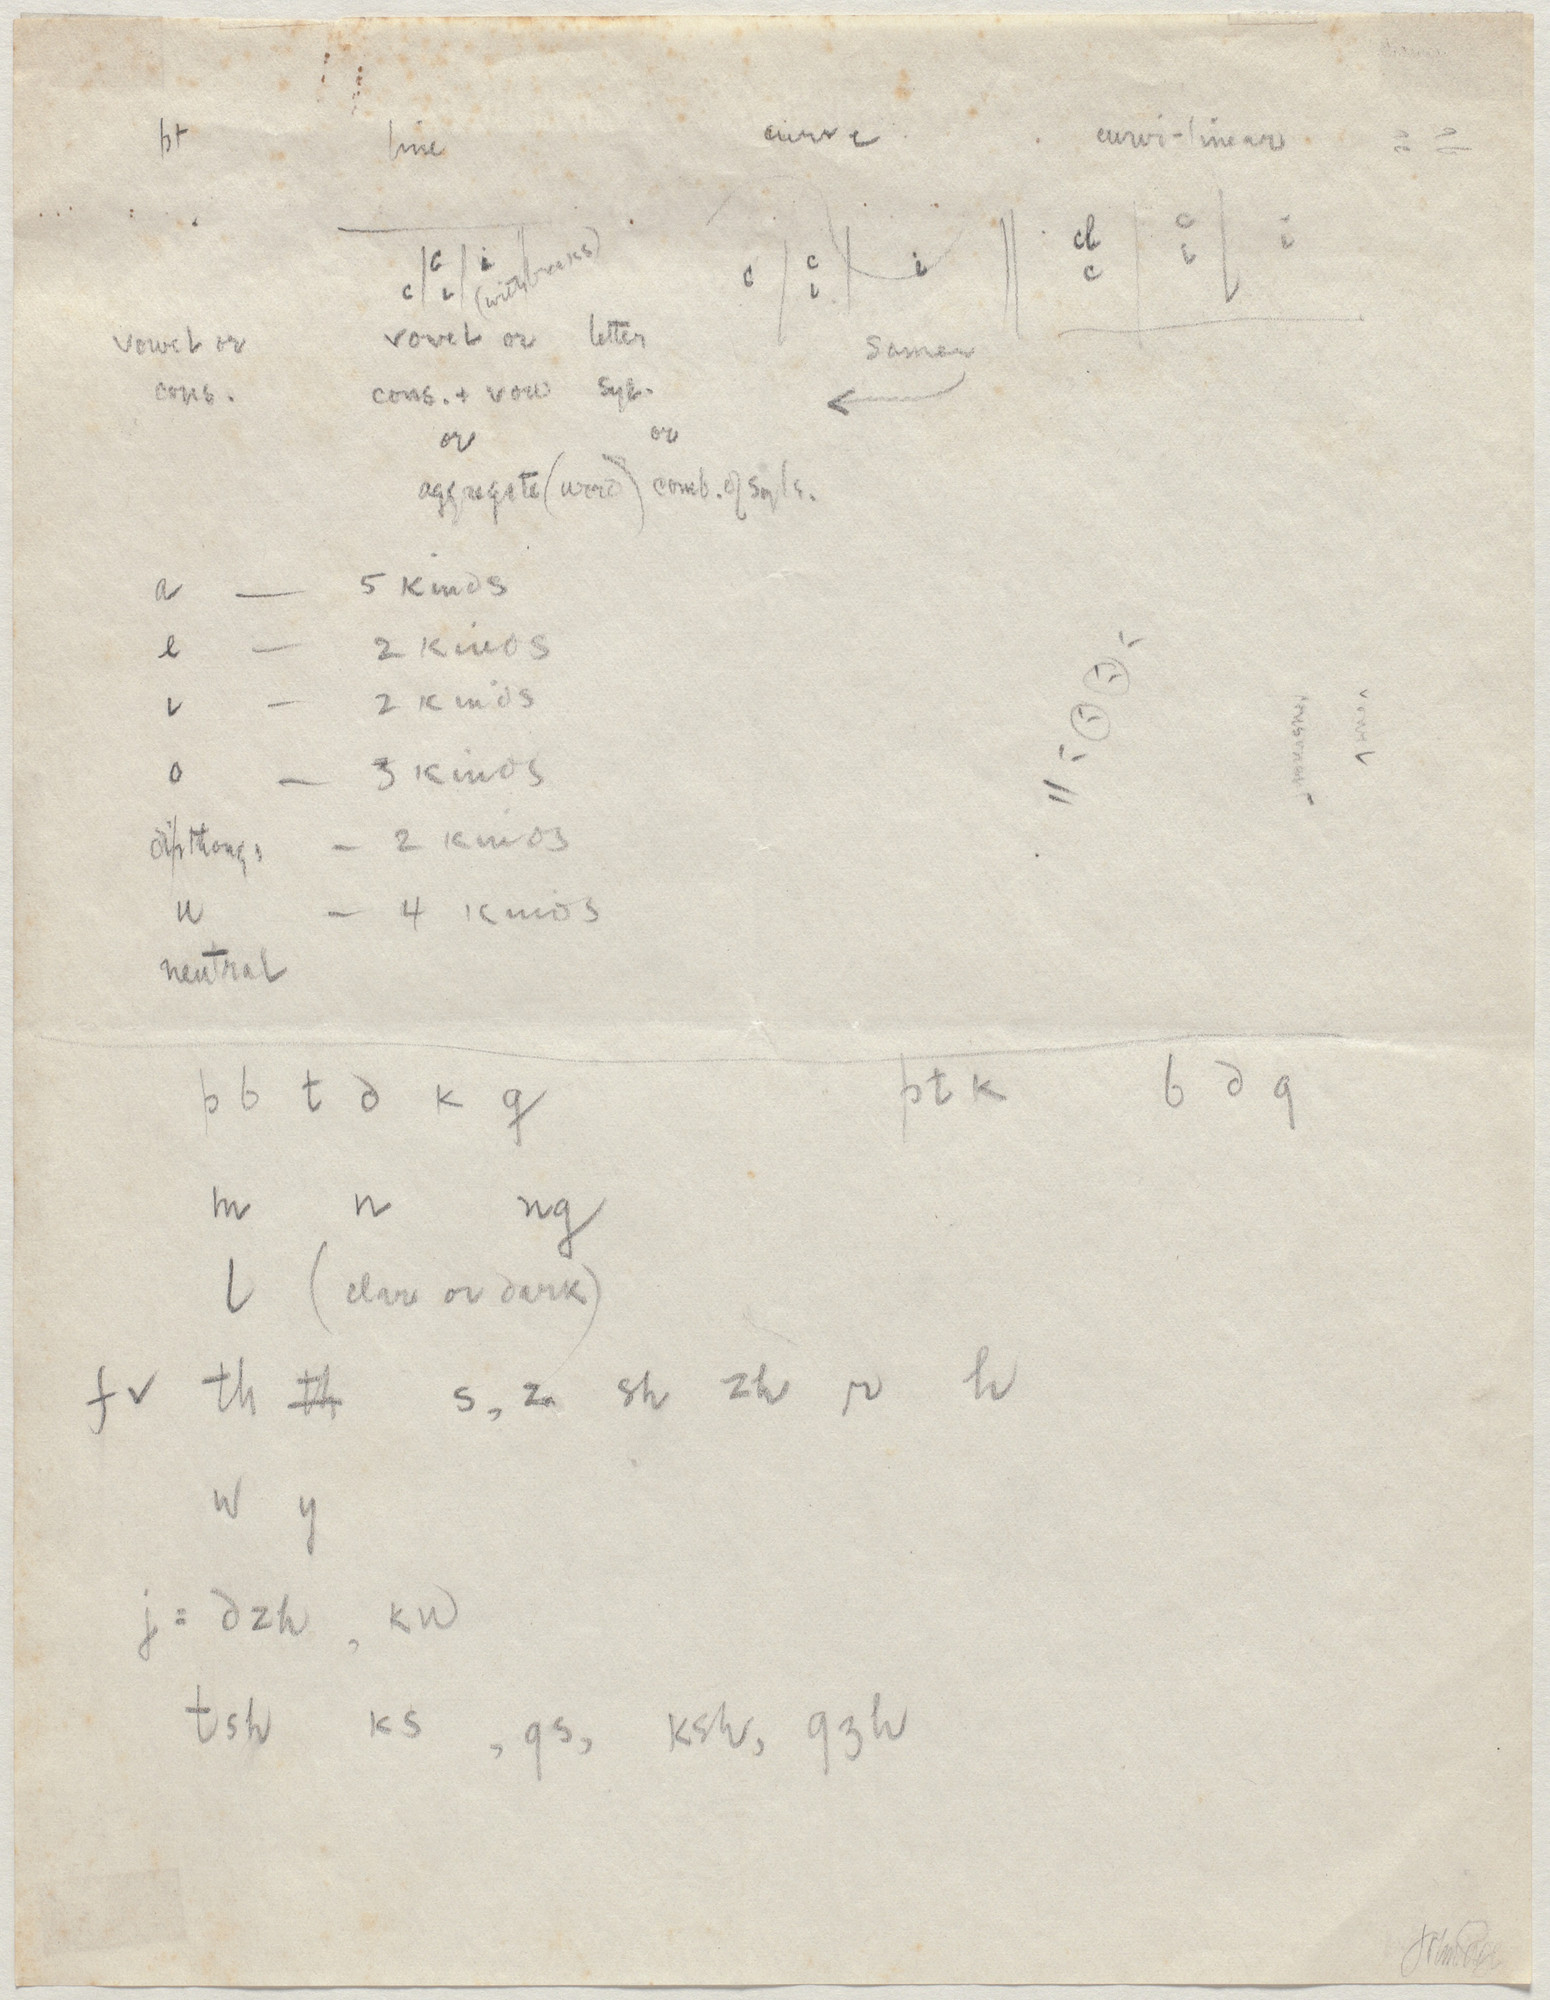 pt line curve curvi-linear
c | c i | i (with breaks) c | c i | i || cl c | c i | i
vowel or vowel or letter same
cons. cons. + vow syl.
or or
aggregate (word) comb. of syls.
a — 5 kinds
e — 2 kinds
i — 2 kinds
o — 3 kinds
dipthongs — 2 kinds
u — 4 kinds
neutral
vowel
consonant
p b t d k g p t k b d g
m n ng
l (clare or dark)
f v th th s, z sh zh r h
w y
j = dzh, kw
tsh ks, gs, ksh, gzh